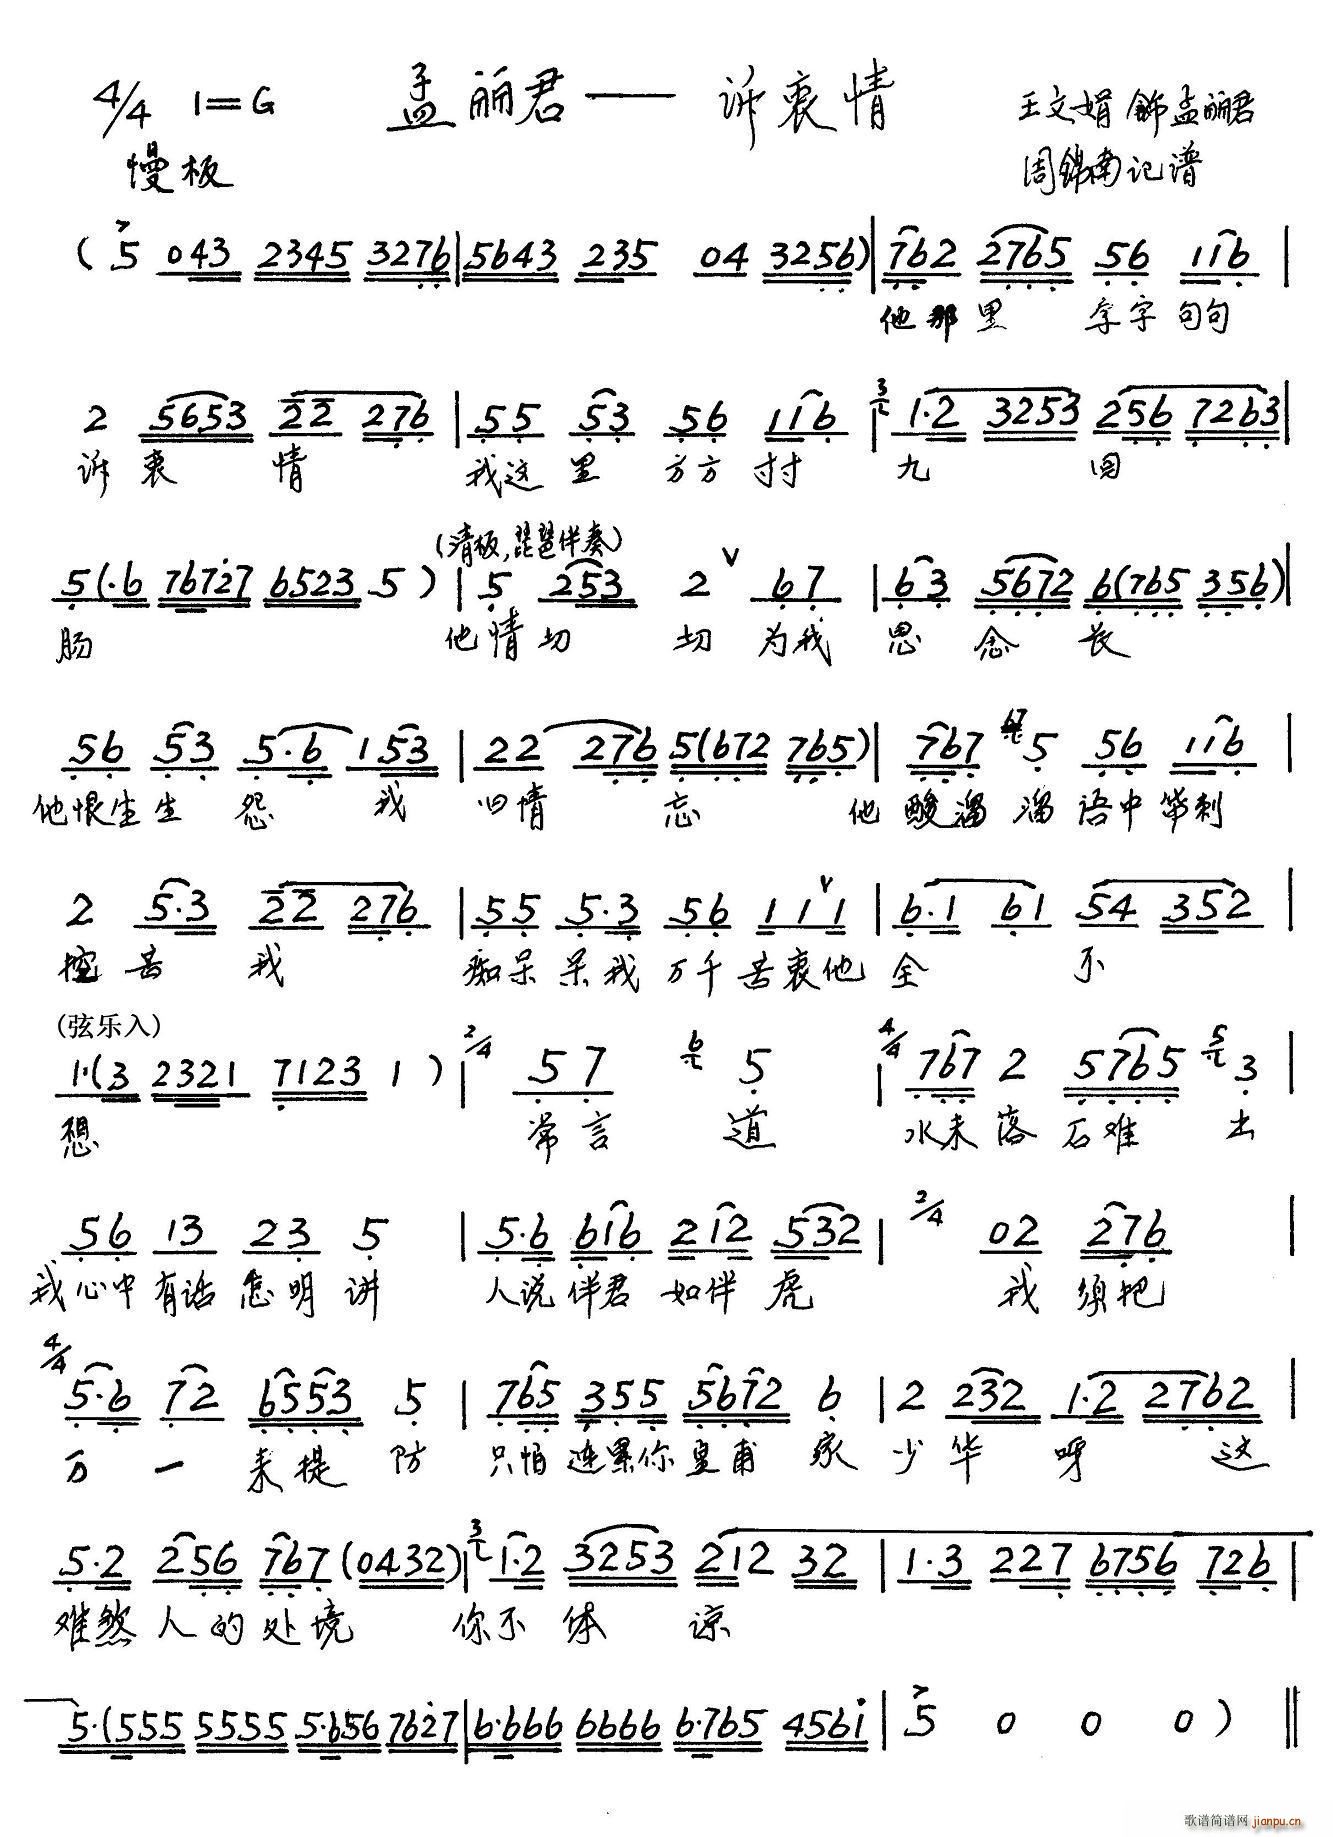 4/4 1=G 孟丽君——诉衷情 王文娟 饰孟丽君
慢板 周锦南记谱
( 5 043 2345 3276 | 5643 235 04 3256 ) | 762 2765 56 116 |
他那里 字字句句
2 5653 22 276 | 55 53 56 116 | 1·2 3253 256 7263 |
诉衷情 我这里 方方寸寸 九 回
(清板,琵琶伴奏)
5(·6 76727 6523 5 ) | 5 253 2 67 | 63 5672 6(765 356) |
肠 他情切 切为我 思念长
56 53 5·6 153 | 22 276 5(672 765) | 767 5 56 116 |
他恨生生怨 我 旧情 忘 他酸溜溜语中带刺
2 5·3 22 276 | 55 5·3 56 111 | 6·1 61 54 352 |
控告我 痴呆呆我万千苦衷他全 不
(弦乐入)
1·(3 2321 7123 1 ) | 2/4 57 6 5 | 4/4 767 2 5765 5 3 |
想 常言 道 水未落石难 出
56 13 23 5 | 5·6 616 212 532 | 2/4 02 276 |
我心中有话怎明讲 人说伴君如伴虎 我须把
4/4
5·6 72 6553 5 | 765 355 5672 6 | 2 232 1·2 2762 |
万一来提防 只怕连累你皇甫家 少华呀 这
5·2 256 767 (0432) | 1·2 3253 212 32 | 1·3 227 6756 726 |
难煞人的处境 你不体 谅
5·(555 5555 5·656 7627 | 6·666 6666 6·765 4561 | 5 0 0 0 ) ‖
歌谱简谱网 jianpu.cn